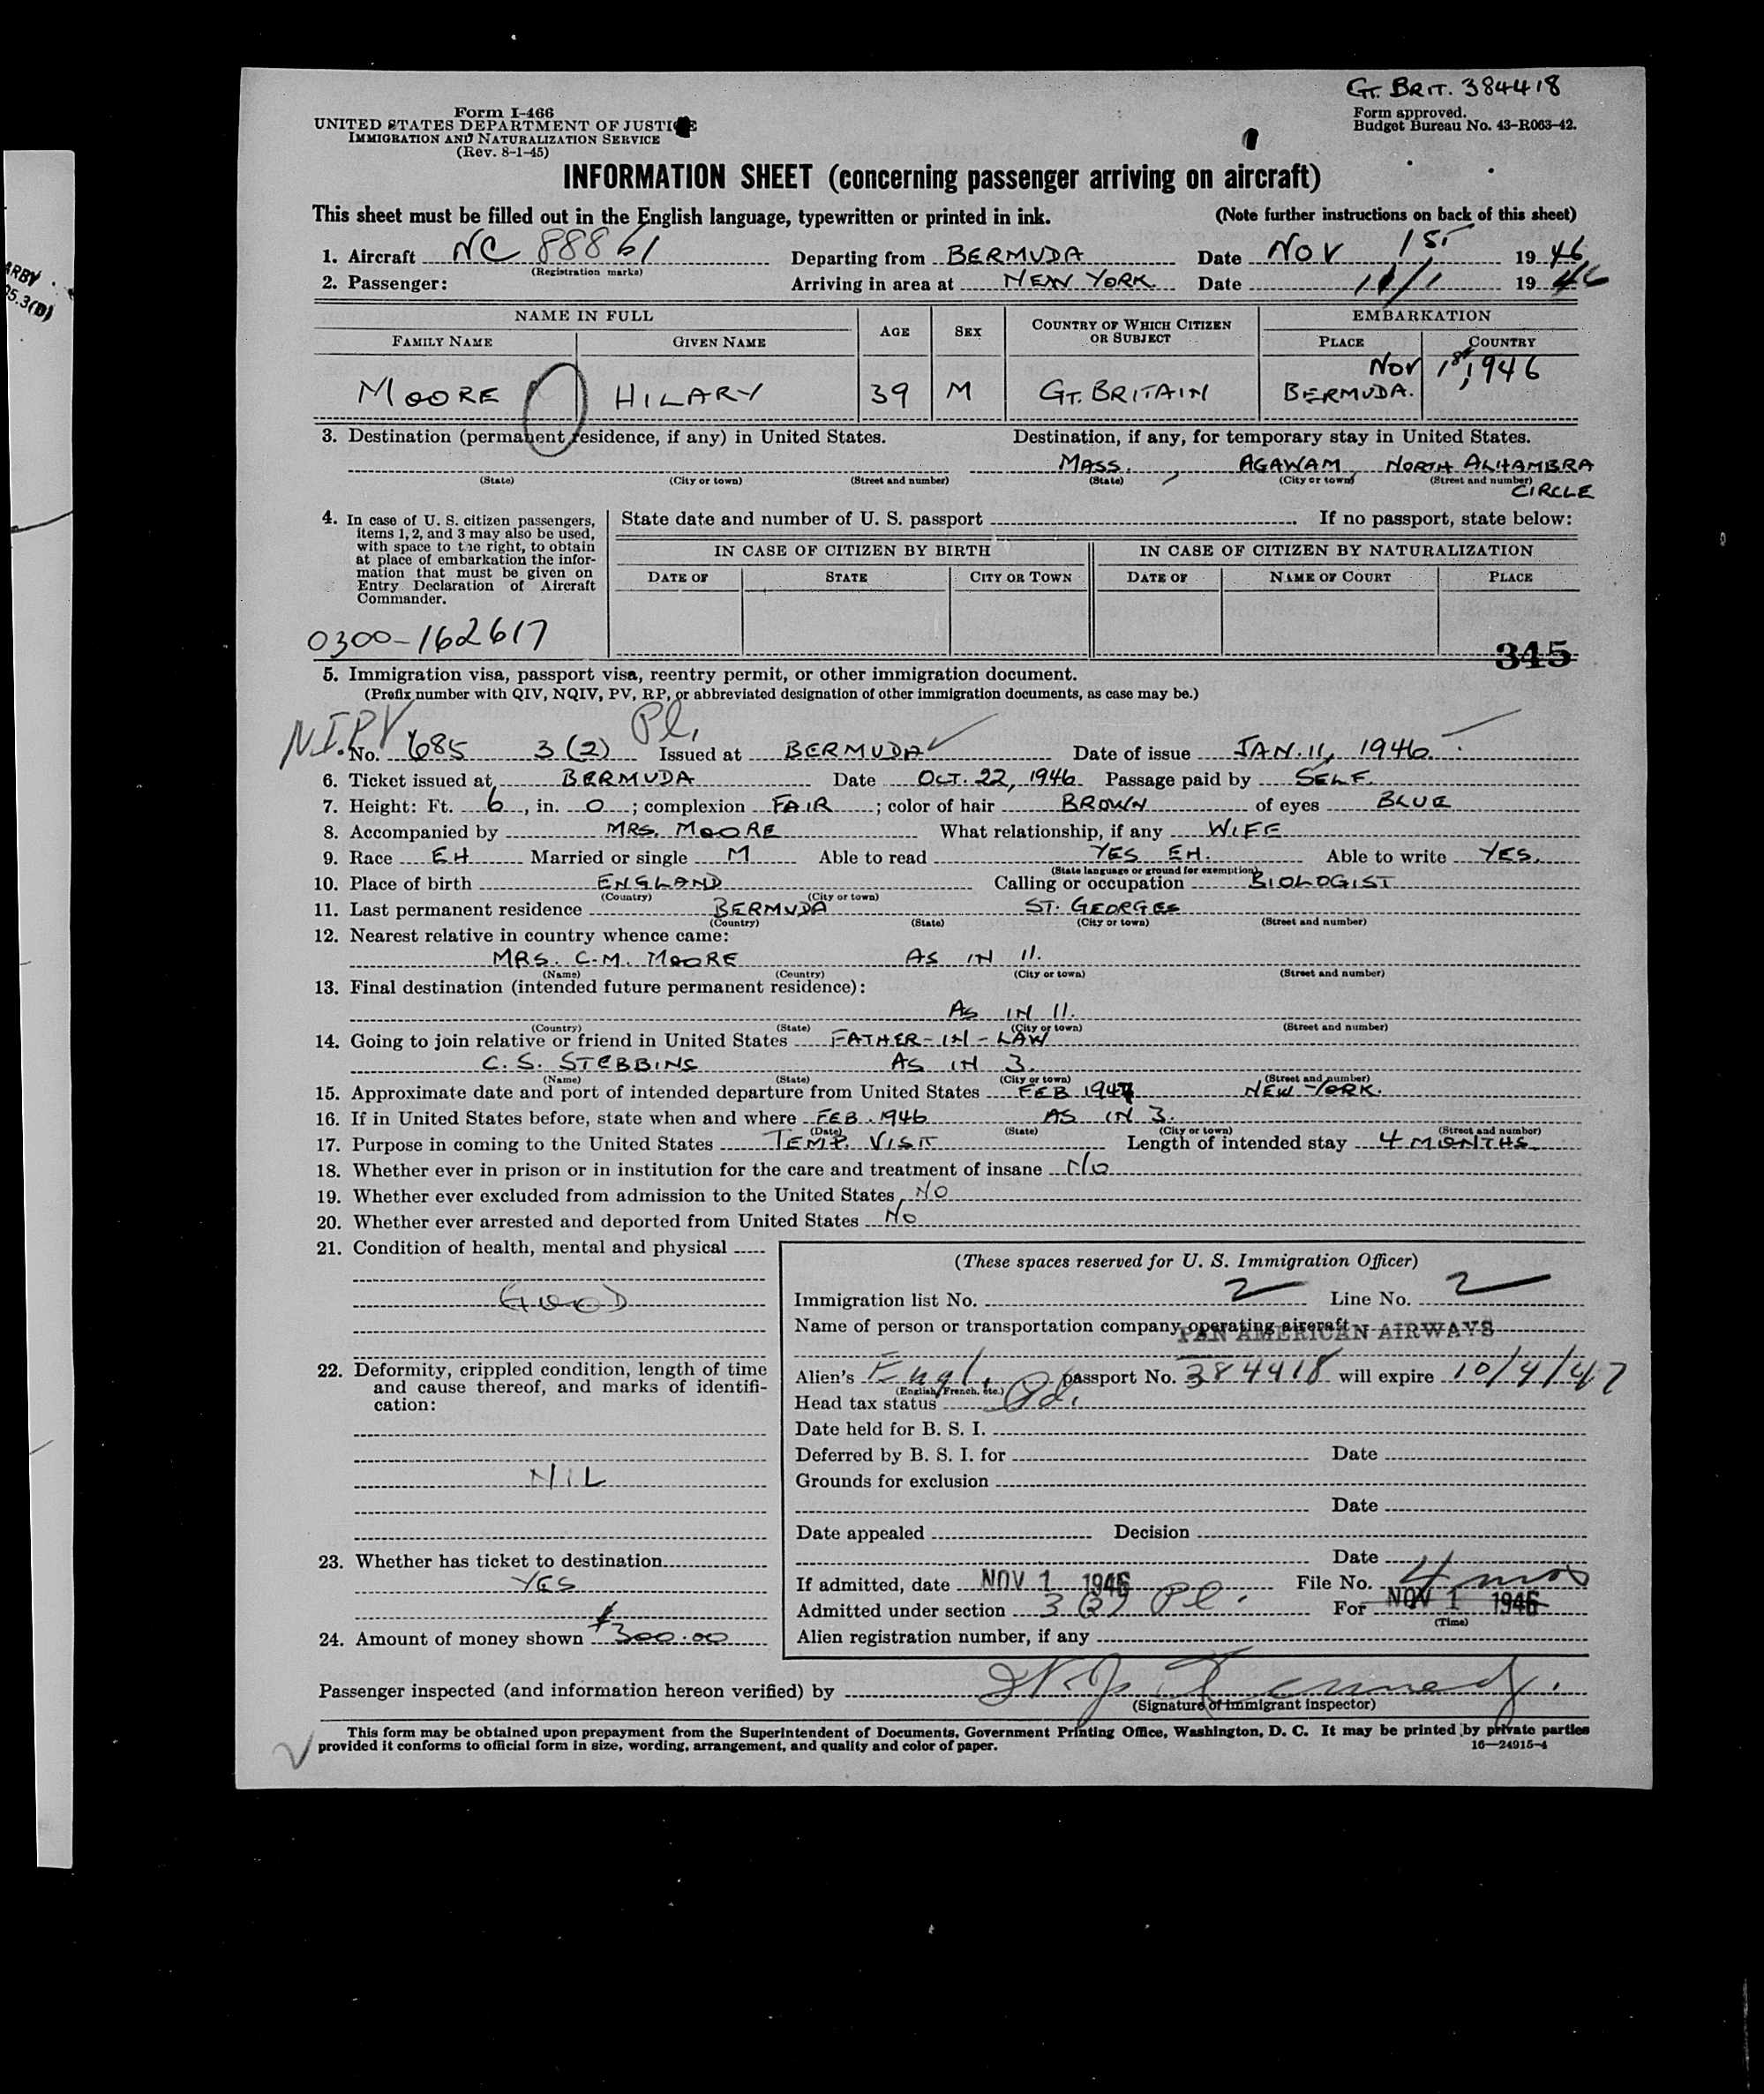 GT. BRIT. 384418
Form I-466
UNITED STATES DEPARTMENT OF JUSTICE
IMMIGRATION AND NATURALIZATION SERVICE
(Rev. 8-1-45)
Form approved.
Budget Bureau No. 43-R063-42.
INFORMATION SHEET (concerning passenger arriving on aircraft)
This sheet must be filled out in the English language, typewritten or printed in ink. (Note further instructions on back of this sheet)
1. Aircraft NC 88861 Departing from BERMUDA Date NOV 1ST 1946
(Registration marks)
2. Passenger: Arriving in area at NEW YORK. Date 11/1 1946
NAME IN FULL AGE SEX COUNTRY OF WHICH CITIZEN OR SUBJECT EMBARKATION
FAMILY NAME GIVEN NAME PLACE COUNTRY
NOV 1st, 1946
MOORE HILARY 39 M GT. BRITAIN BERMUDA.
3. Destination (permanent residence, if any) in United States. Destination, if any, for temporary stay in United States.
MASS., AGAWAM, NORTH ALHAMBRA
(State) (City or town) (Street and number) (State) (City or town) (Street and number)
CIRCLE
4. In case of U. S. citizen passengers,
items 1, 2, and 3 may also be used,
with space to the right, to obtain
at place of embarkation the infor-
mation that must be given on
Entry Declaration of Aircraft
Commander.
State date and number of U. S. passport If no passport, state below:
IN CASE OF CITIZEN BY BIRTH IN CASE OF CITIZEN BY NATURALIZATION
DATE OF STATE CITY OR TOWN DATE OF NAME OF COURT PLACE
0300-162617
345
5. Immigration visa, passport visa, reentry permit, or other immigration document.
(Prefix number with QIV, NQIV, PV, RP, or abbreviated designation of other immigration documents, as case may be.)
N.I.P.V Pl.
No. 685 3(2) Issued at BERMUDA Date of issue JAN. 11, 1946
6. Ticket issued at BERMUDA Date OCT. 22, 1946 Passage paid by SELF.
7. Height: Ft. 6, in. 0; complexion FAIR; color of hair BROWN of eyes BLUE
8. Accompanied by MRS. MOORE What relationship, if any WIFE
9. Race EH Married or single M Able to read YES EH. Able to write YES.
(State language or ground for exemption)
10. Place of birth ENGLAND Calling or occupation BIOLOGIST
(Country) (City or town)
11. Last permanent residence BERMUDA ST. GEORGES
(Country) (State) (City or town) (Street and number)
12. Nearest relative in country whence came:
MRS. C.M. MOORE AS IN 11.
(Name) (Country) (City or town) (Street and number)
13. Final destination (intended future permanent residence):
AS IN 11.
(Country) (State) (City or town) (Street and number)
14. Going to join relative or friend in United States FATHER-IN-LAW
C. S. STEBBINS AS IN 3.
(Name) (State) (City or town) (Street and number)
15. Approximate date and port of intended departure from United States FEB 1947 NEW YORK.
16. If in United States before, state when and where FEB. 1946 AS IN 3.
(Date) (State) (City or town) (Street and number)
17. Purpose in coming to the United States TEMP. VISIT Length of intended stay 4 MONTHS
18. Whether ever in prison or in institution for the care and treatment of insane No
19. Whether ever excluded from admission to the United States No
20. Whether ever arrested and deported from United States No
21. Condition of health, mental and physical
GOOD
22. Deformity, crippled condition, length of time
and cause thereof, and marks of identifi-
cation:
NIL
23. Whether has ticket to destination
YES
24. Amount of money shown $300.00
(These spaces reserved for U. S. Immigration Officer)
Immigration list No. 2 Line No. 2
Name of person or transportation company operating aircraft
PAN AMERICAN AIRWAYS
Alien's Engl. passport No. 384418 will expire 10/4/47
(English, French, etc.)
Head tax status Pd.
Date held for B. S. I.
Deferred by B. S. I. for Date
Grounds for exclusion
Date
Date appealed Decision
Date
If admitted, date NOV 1 1946 File No. 4 mos
Admitted under section 3(2) Pl. For NOV 1 1946
(Time)
Alien registration number, if any
Passenger inspected (and information hereon verified) by
(Signature of immigrant inspector)
This form may be obtained upon prepayment from the Superintendent of Documents, Government Printing Office, Washington, D. C. It may be printed by private parties
provided it conforms to official form in size, wording, arrangement, and quality and color of paper. 16—24915-4